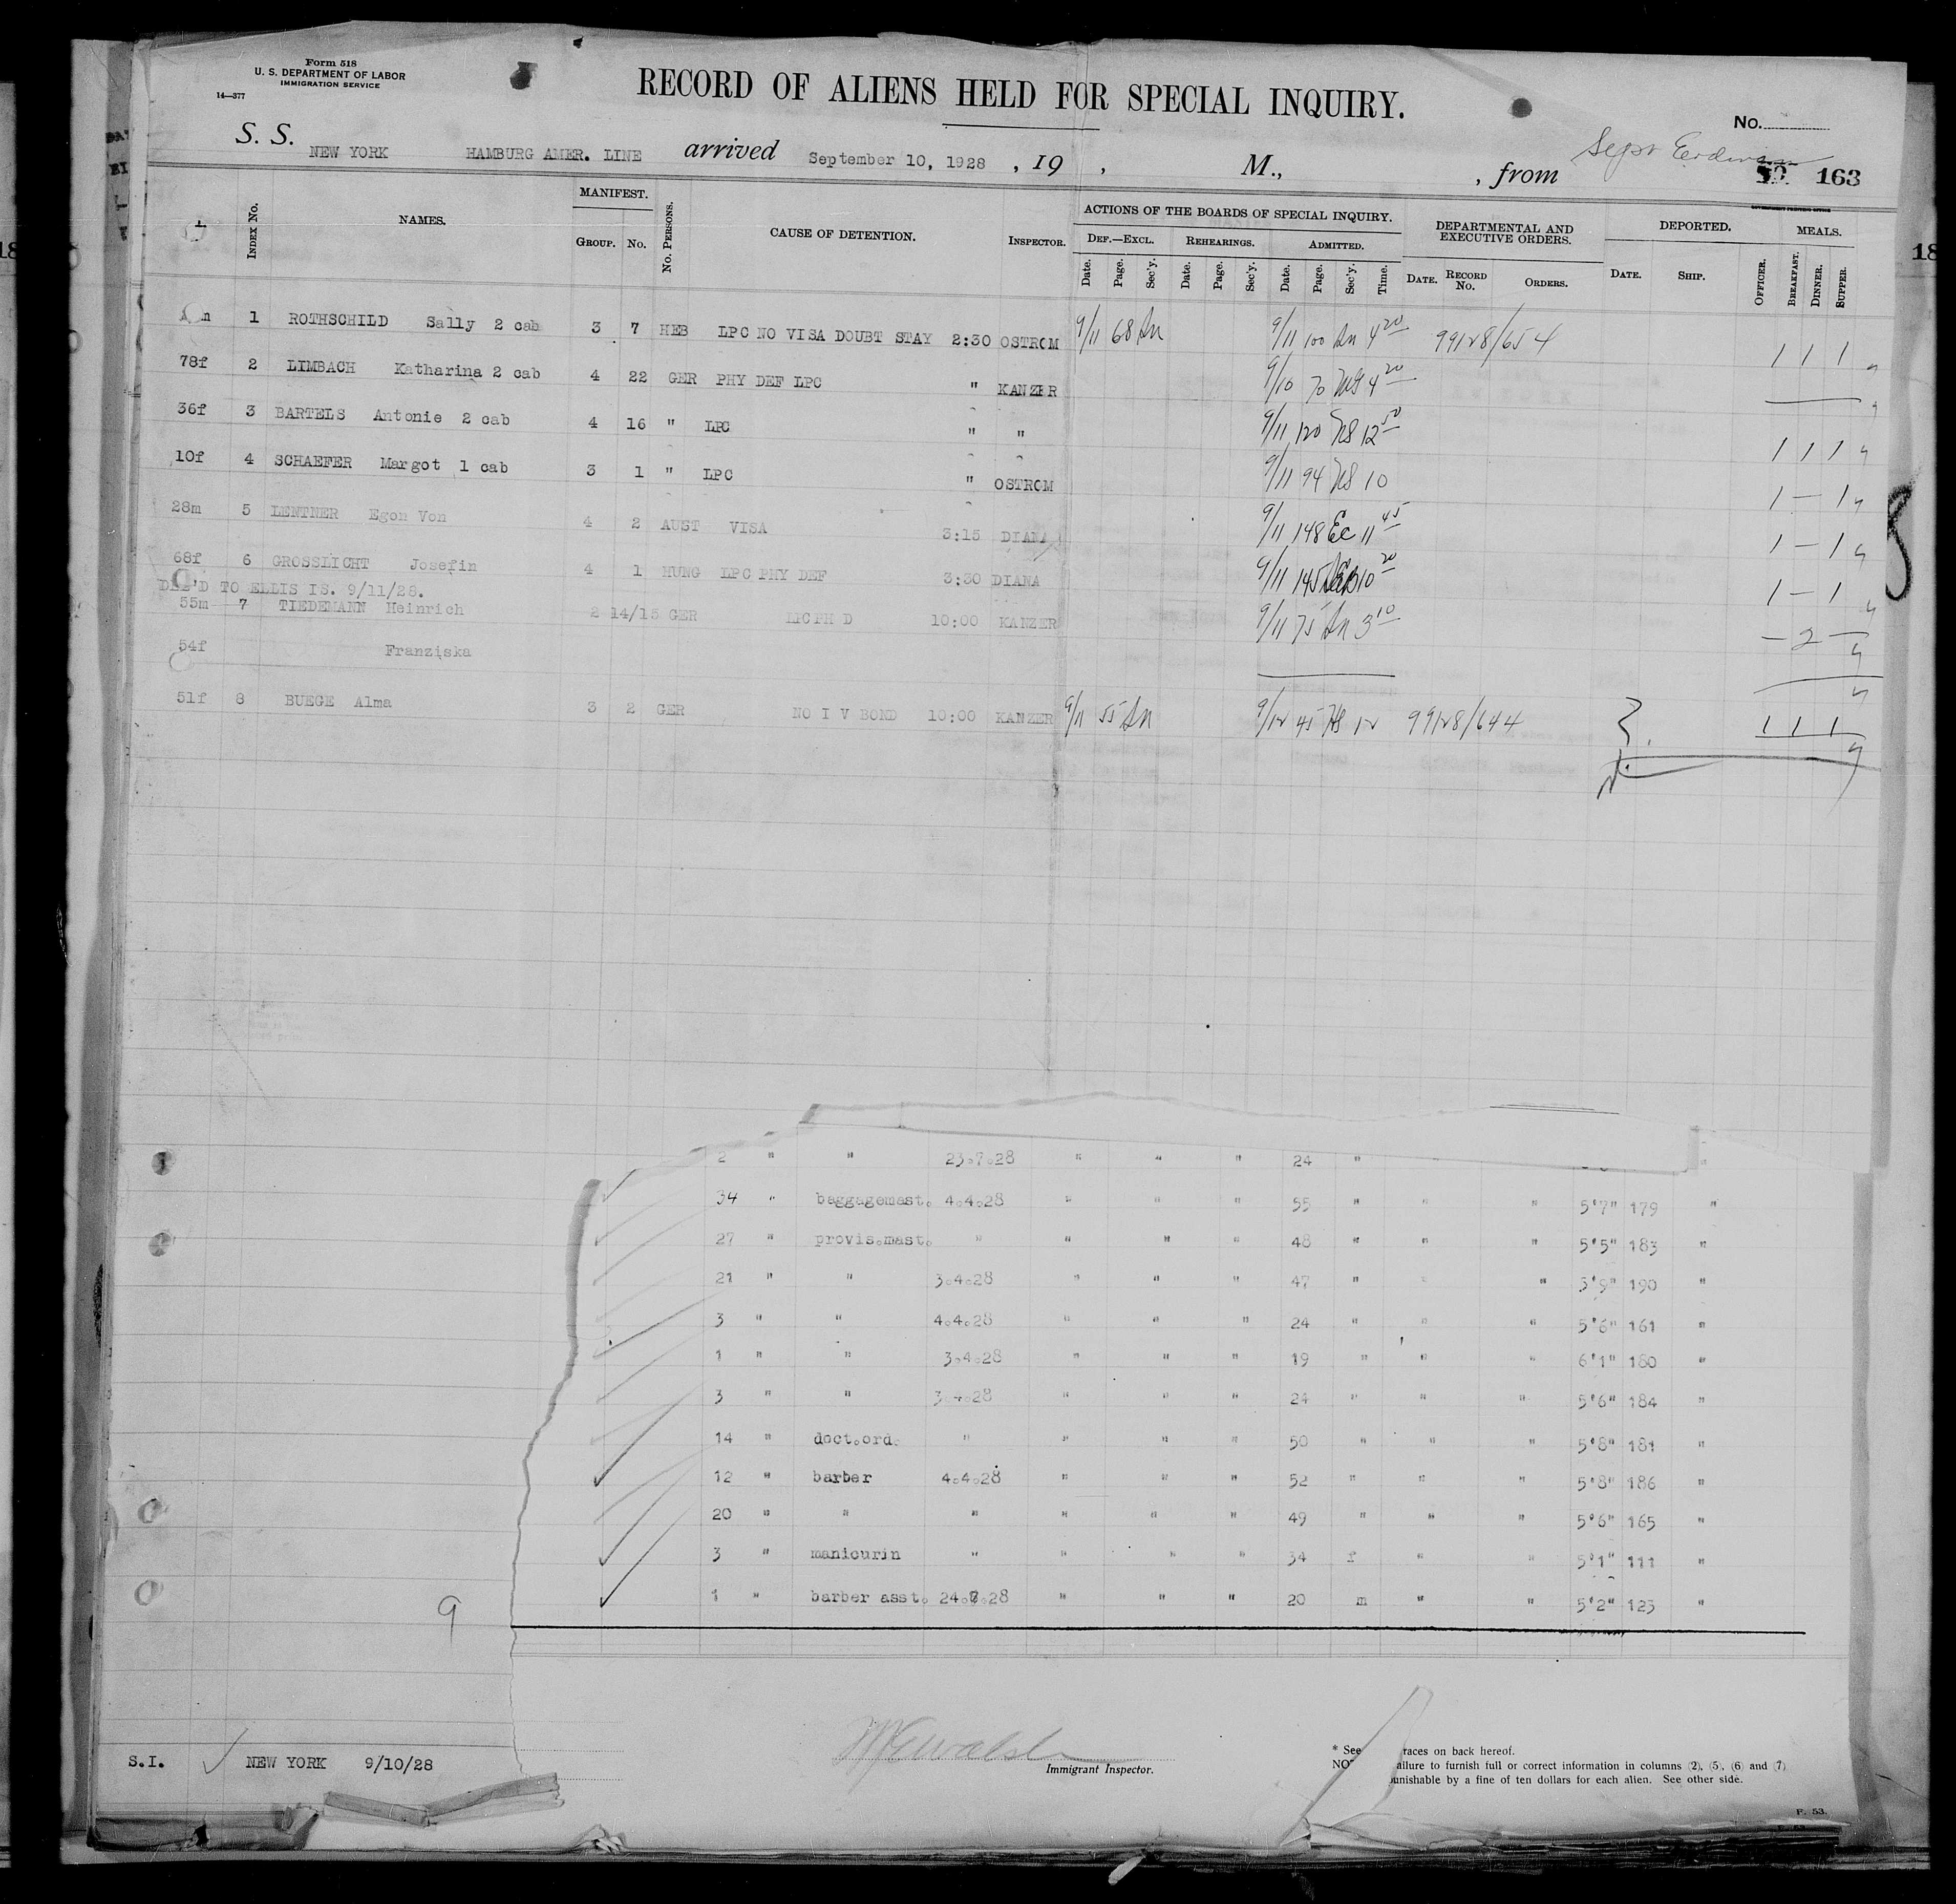 Form 518
U. S. DEPARTMENT OF LABOR
IMMIGRATION SERVICE
14—377
RECORD OF ALIENS HELD FOR SPECIAL INQUIRY.
No.
S. S. NEW YORK HAMBURG AMER. LINE arrived September 10, 1928 , 19 , M., , from
163
INDEX No. NAMES. MANIFEST. GROUP. No. No. PERSONS. CAUSE OF DETENTION. INSPECTOR. ACTIONS OF THE BOARDS OF SPECIAL INQUIRY. DEF.—EXCL. Date. Page. Sec'y. REHEARINGS. Date. Page. Sec'y. ADMITTED. Date. Page. Sec'y. Time. DEPARTMENTAL AND EXECUTIVE ORDERS. DATE. RECORD No. ORDERS. DEPORTED. DATE. SHIP. OFFICER. MEALS. BREAKFAST. DINNER. SUPPER.
1 ROTHSCHILD Sally 2 cab 3 7 HEB LPC NO VISA DOUBT STAY 2:30 OSTROM 9/11 68 9/11 100 4 20 99128/654 1 1 1
78f 2 LIMBACH Katharina 2 cab 4 22 GER PHY DEF LPC " KANZER 9/10 70 4 20
36f 3 BARTELS Antonie 2 cab 4 16 " LPC " " 9/11 120 12 50 1 1 1
10f 4 SCHAEFER Margot 1 cab 3 1 " LPC " OSTROM 9/11 94 10 1 — 1
28m 5 LENTNER Egon Von 4 2 AUST VISA 3:15 DIANA 9/11 148 Ec 11 45 1 — 1
68f 6 GROSSLICHT Josefin 4 1 HUNG LPC PHY DEF 3:30 DIANA 9/11 145 10 20 1 — 1
DEL'D TO ELLIS IS. 9/11/28.
55m 7 TIEDEMANN Heinrich 2 14/15 GER LPC PH D 10:00 KANZER 9/11 75 3 10 — 2 —
54f Franziska
51f 8 BUEGE Alma 3 2 GER NO I V BOND 10:00 KANZER 9/11 55 9/12 45 12 99128/644 1 1 1
2 " " 23.7.28 " " " 24 "
34 " baggagemast. 4.4.28 " " " 55 " " " 5'7" 179 "
27 " provis.mast. " " " " 48 " " " 5'5" 183 "
21 " " 3.4.28 " " " 47 " " " 5'9" 190 "
3 " " 4.4.28 " " " 24 " " " 5'6" 161 "
1 " " 3.4.28 " " " 19 " " " 6'1" 180 "
3 " " 3.4.28 " " " 24 " " " 5'6" 184 "
14 " doct.ord. " " " " 50 " " " 5'8" 181 "
12 " barber 4.4.28 " " " 52 " " " 5'8" 186 "
20 " " " " " " 49 " " " 5'6" 165 "
3 " manicurin " " " " 34 f " " 5'1" 111 "
1 " barber asst. 24.7.28 " " " 20 m " " 5'2" 123 "
9
Immigrant Inspector.
* See races on back hereof.
allure to furnish full or correct information in columns (2), (5), (6) and (7)
unishable by a fine of ten dollars for each alien. See other side.
S.I. NEW YORK 9/10/28
P. 53.